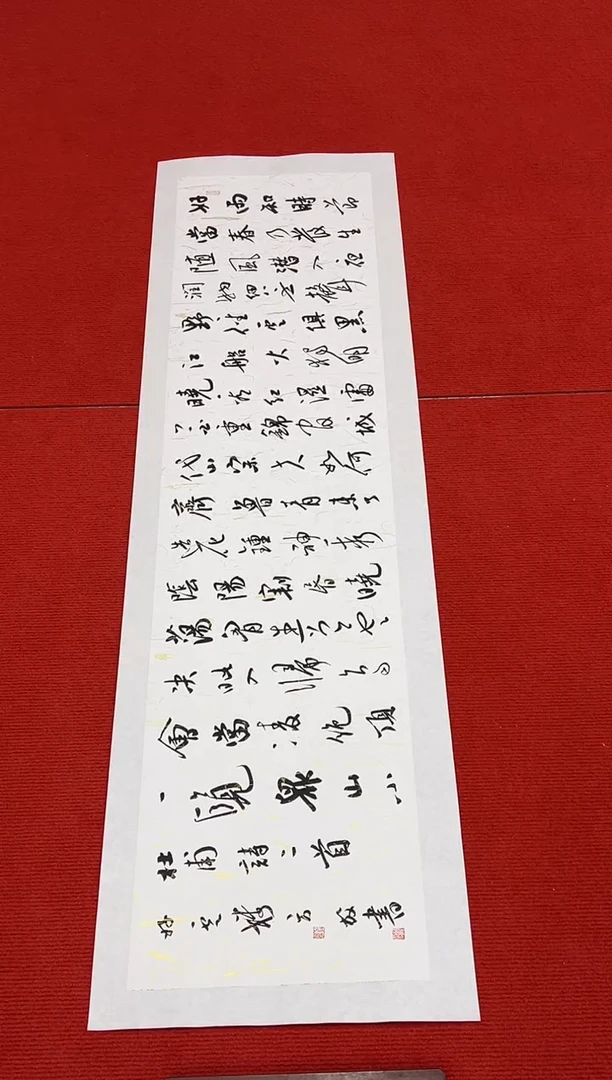 好雨知時節
當春乃發生
随風潜入夜
润物細无聲
野径雲俱黑
江船火獨明
曉看紅濕處
花重錦官城
岱宗夫如何
齊魯青未了
造化鍾神秀
陰陽割昏曉
蕩胷生层云
决眦入歸鳥
會當凌絶頂
一覽眾山小
杜甫詩二首
書